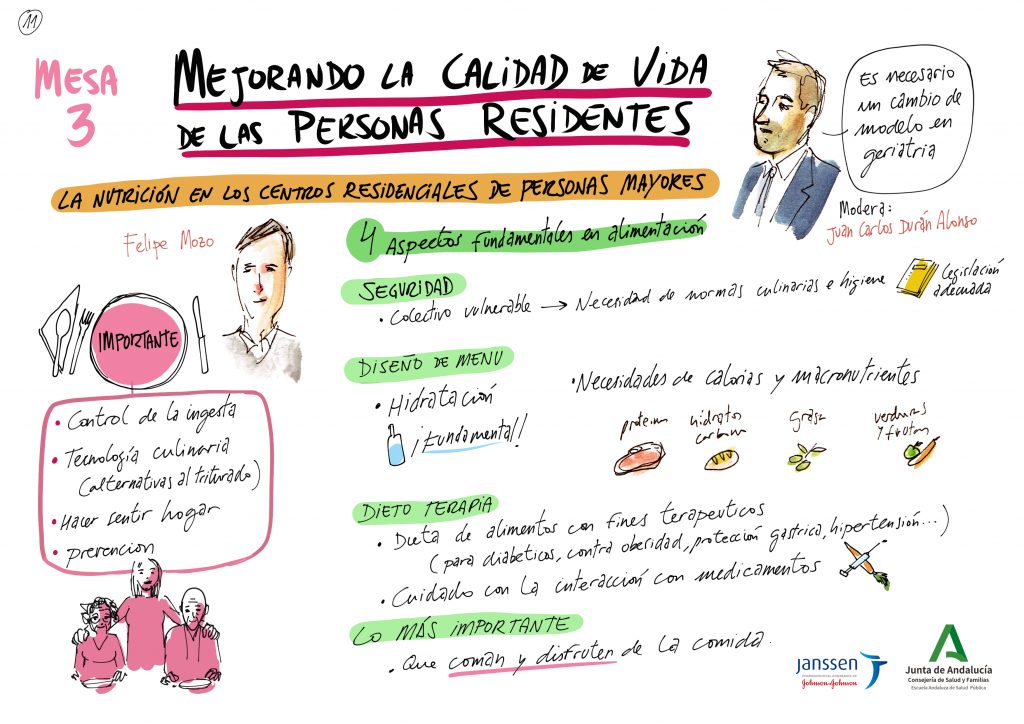 11
MESA
3
MEJORANDO LA CALIDAD DE VIDA
DE LAS PERSONAS RESIDENTES
Es necesario
un cambio de
modelo en
geriatria
Modera:
Juan Carlos Durán Alonso
LA NUTRICIÓN EN LOS CENTROS RESIDENCIALES DE PERSONAS MAYORES
Felipe Mozo
IMPORTANTE
• Control de la ingesta
• Tecnología culinaria
(alternativas al triturado)
• Hacer sentir hogar
• prevencion
4 Aspectos fundamentales en alimentación
SEGURIDAD
• Colectivo vulnerable → Necesidad de normas culinarias e higiene
Legislación
adecuada
DISEÑO DE MENU
• Hidratación
¡Fundamental!!
• Necesidades de calorias y macronutrientes
proteina
hidratos
carbono
grasa
verduras
y frutas
DIETO TERAPIA
• Dieta de alimentos con fines terapeuticos
(para diabeticos, contra obesidad, protección gastrica, hipertensión...)
• Cuidado con la interacción con medicamentos
LO MÁS IMPORTANTE
• Que coman y disfruten de la comida.
janssen
Johnson & Johnson
Junta de Andalucía
Consejería de Salud y Familias
Escuela Andaluza de Salud Pública